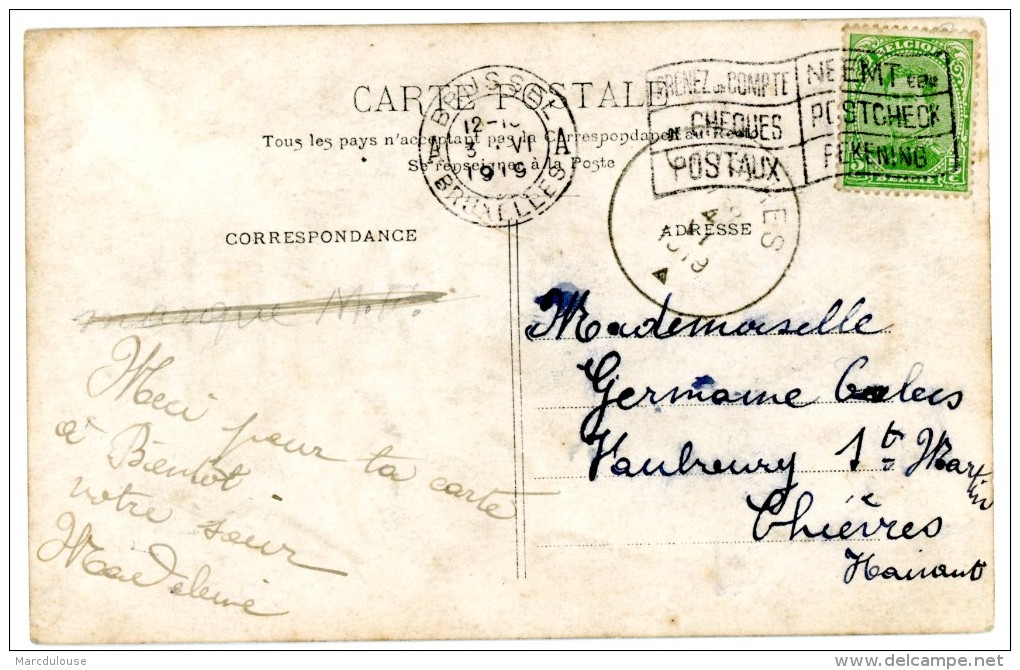 BELGIQUE
CARTE POSTALE
Tous les pays n'acceptant pas la Correspondance au recto
Se renseigner à la Poste
BRUSSEL
12-
3 VI
1919
A A
BRUXELLES
PRENEZ un COMPTE
CHEQUES
POSTAUX
NEEMT een
POSTCHECK
REKENING
CORRESPONDANCE
ADRESSE
1919
marque M.
Meci pour ta carte
à Bientot
votre sœur
Madeleine
Mademoiselle
Germaine
St Martin
Chièvres
Hainaut
Marcdulouse